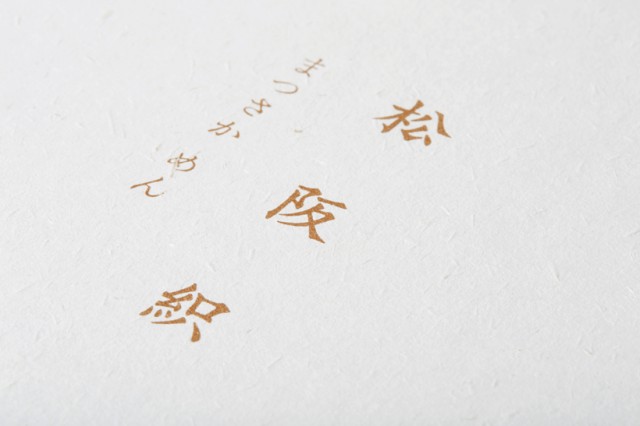 松阪
まつさかめん